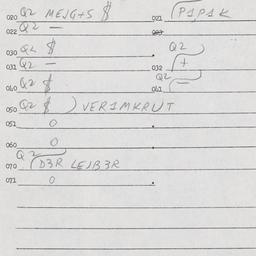 020 Q2 MEJG+S $ 021 P1P1K
022 Q2 —
030 Q2 $ Q2
031 Q2 — 032 +
040 Q2 $ Q2 041 —
050 Q2 $ ) VER1MKRUT
051 0
060 0
Q2
070 D3R LEJB3R
071 0